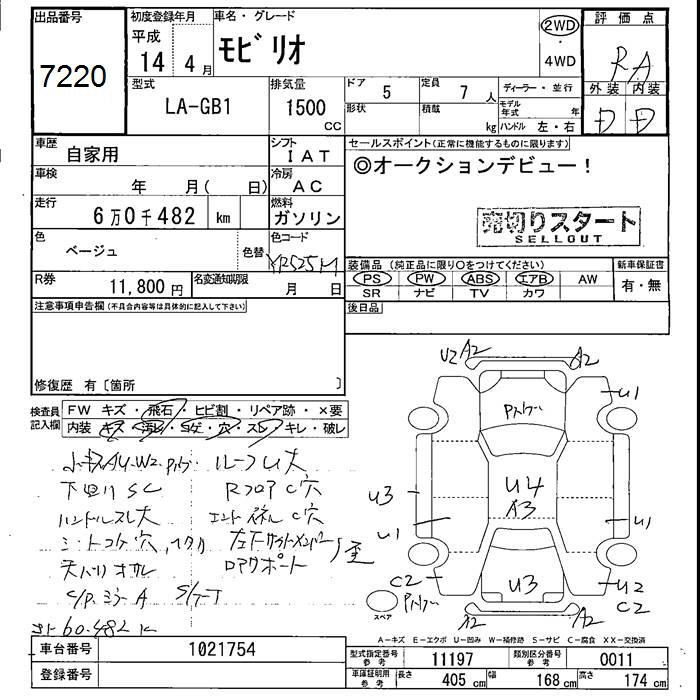 出品番号
7220
初度登録年月
平成
14 4 月
車名・グレード
モビリオ
2WD
・
4WD
評価点
RA
外装 内装
D D
型式
LA-GB1
排気量
1500
CC
ドア 5
定員 7 人
形状
積載 kg
ディーラー・並行
モデル年式 年
ハンドル 左・右
車歴
自家用
シフト
IAT
車検
年 月( 日)
冷房
AC
走行
6万0千482 km
燃料
ガソリン
色
ベージュ
色替
色コード
YR525M
R券
11,800 円
名変通知期限
月 日
セールスポイント(正常に機能するものに限ります)
◎オークションデビュー!
売切りスタート
SELLOUT
装備品 (純正品に限り○をつけてください)
PS PW ABS エアB AW
SR ナビ TV カワ
新車保証書
有・無
後日品
注意事項申告欄(不具合内容等は具体的に記入して下さい)
修復歴 有〔箇所 〕
検査員
記入欄
FW キズ・飛石・ヒビ割・リペア跡・×要
内装 キズ・汚れ・コゲ・穴・スレ・キレ・破レ
下回リSC
ハンドルスレ大
天バリヨゴレ
C/P.ミラーA
ルーフU大
RフロアC穴
ロアサポート
60.482K
U2 A2
A2
U1
U3
U4
A3
U1
U1
C2
U3
U2
C2
A2
A2
スペア
A-キズ E-エクボ U-凹み W-補修跡 S-サビ C-腐食 XX-交換済
車台番号
1021754
登録番号
型式指定番号
参考
11197
類別区分番号
参考
0011
車庫証明用
参考
長さ 405 cm
幅 168 cm
高さ 174 cm